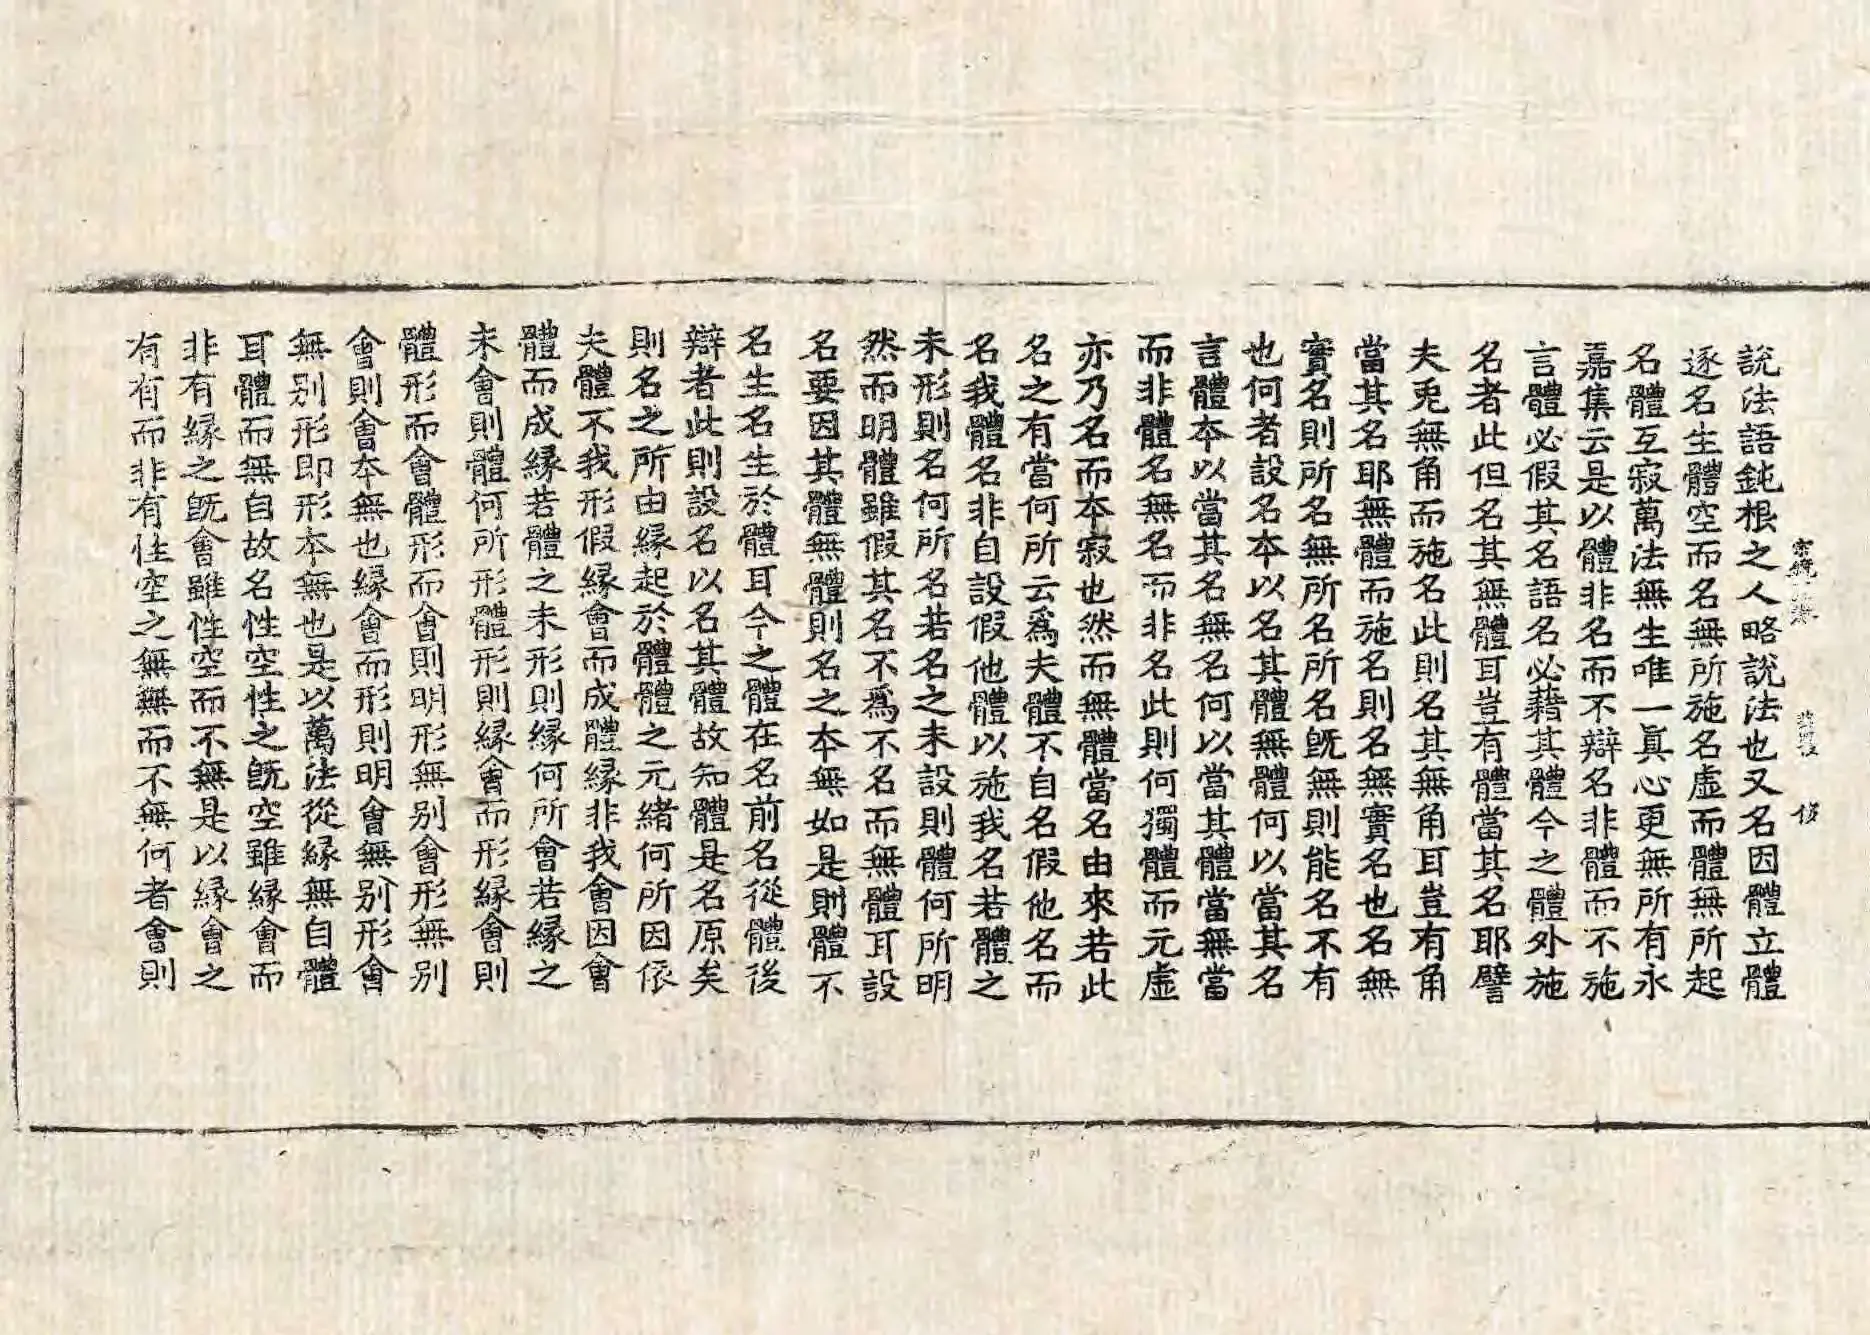 說法語鈍根之人略說法也又名因體立體
逐名生體空而名無所施名虛而體無所起
名體互寂萬法無生唯一眞心更無所有永
嘉集云是以體非名而不辯名非體而不施
言體必假其名語名必藉其體今之體外施
名者此但名其無體耳豈有體當其名耶譬
夫兎無角而施名此則名其無角耳豈有角
當其名耶無體而施名則名無實名也名無
實名則所名無所名所名旣無則能名不有
也何者設名本以名其體無體何以當其名
言體本以當其名無名何以當其體體當無當
而非體名無名而非名此則何獨體而元虛
亦乃名而本寂也然而無體當名由來若此
名之有當何所云爲夫體不自名假他名而
名我體名非自設假他體以施我名若體之
未形則名何所名若名之未設則體何所明
然而明體雖假其名不爲不名而無體耳設
名要因其體無體則名之本無如是則體不
名生名生於體耳今之體在名前名從體後
辯者此則設名以名其體故知體是名原矣
則名之所由緣起於體體之元緒何所因依
夫體不我形假緣會而成體緣非我會因會
體而成緣若體之未形則緣何所會若緣之
未會則體何所形體形則緣會而形緣會則
體形而會體形而會則明形無別會形無別
會則會本無也緣會而形則明會無別形會
無別形即形本無也是以萬法從緣無自體
耳體而無自故名性空性之旣空雖緣會而
非有緣之旣會雖性空而不無是以緣會之
有有而非有性空之無無而不無何者會則